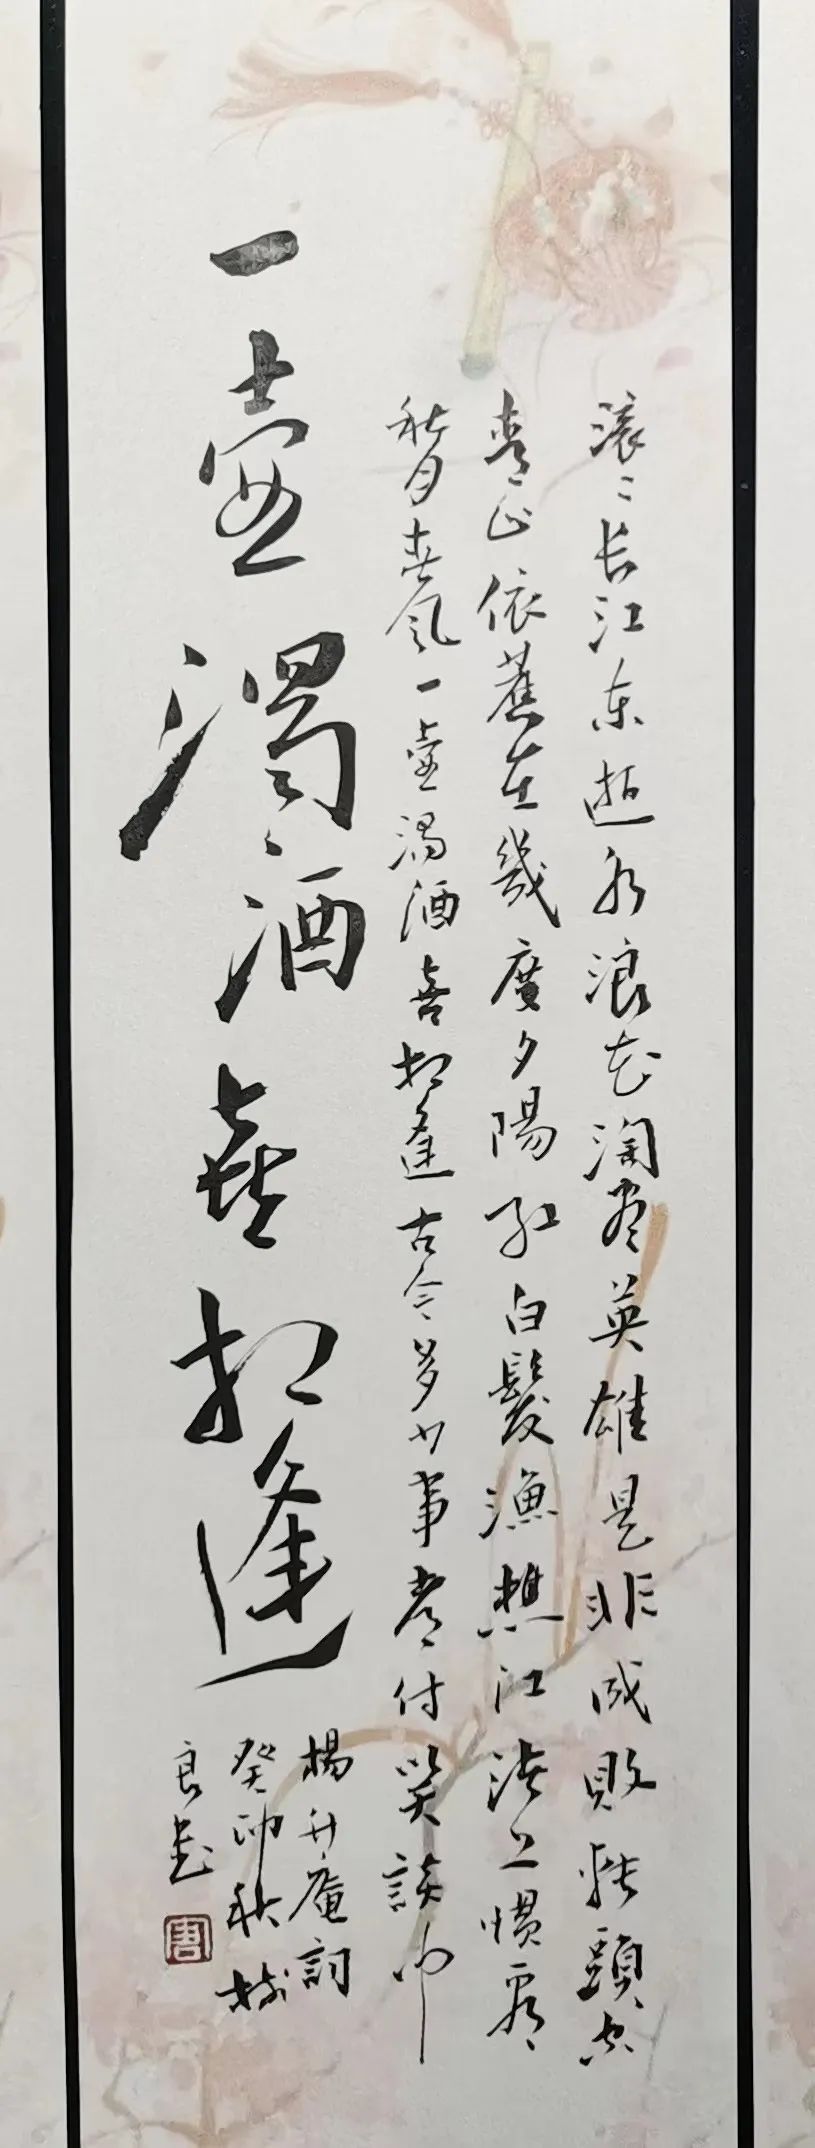 滚〻长江东逝水浪花淘尽英雄是非成敗轉頭空
青山依舊在幾度夕陽红白髮漁樵江渚上惯看
秋月春風一壶濁酒喜相逢古今多少事都付笑談中
一壶濁酒喜相逢
楊升庵詞
癸卯秋樹
良書